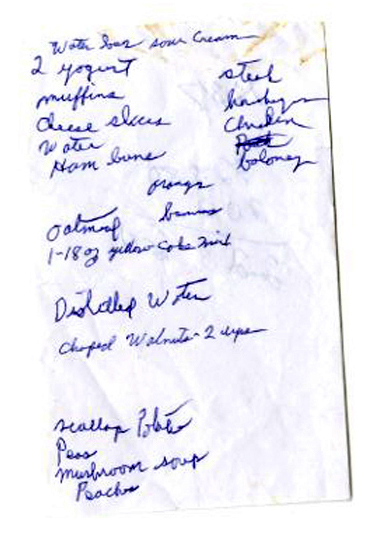 Water bar sour Cream
2 yogurt
muffins
cheese slices
Water
Ham bone
steak
hamburger
Chicken
boloney
orange
banans
oatmeal
1-18 oz yellow cake mix
Distilled Water
Choped Walnuts-2 cups
scallop Potato
Peas
mushroom soup
Peaches